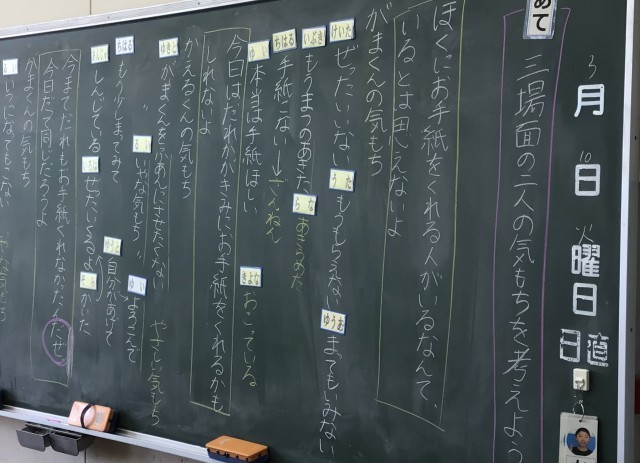 3月
10日
火曜日
日直
めあて
三場面の二人の気もちを考えよう
ぼくにお手紙をくれる人がいるなんて、
いるとは思えないよ
がまくんの気もち
けいた
ぜったいいない
うた
もうもらえない
ゆうむ
まってもいみない
いぶき
もうまつのあきた
らな
あきらめた
ちはる
手紙こない→ざんねん
ゆい
本当は手紙ほしい
きよな
おこっている
今日はだれかがきみにお手紙をくれるかも
しれないよ
かえるくんの気もち
ゆきと
がまくんをふあんにさせたくない
やさしい気もち
るい
いやな気もち
ゆい
よろこんで
ちはる
もう少しまってみて
自分があげて
しんじている
せたい
くるよ
かいた
今までだれもお手紙くれなかった
なぜ
今日だって同じだろうよ
がまくんの気もち
いつになってもこない